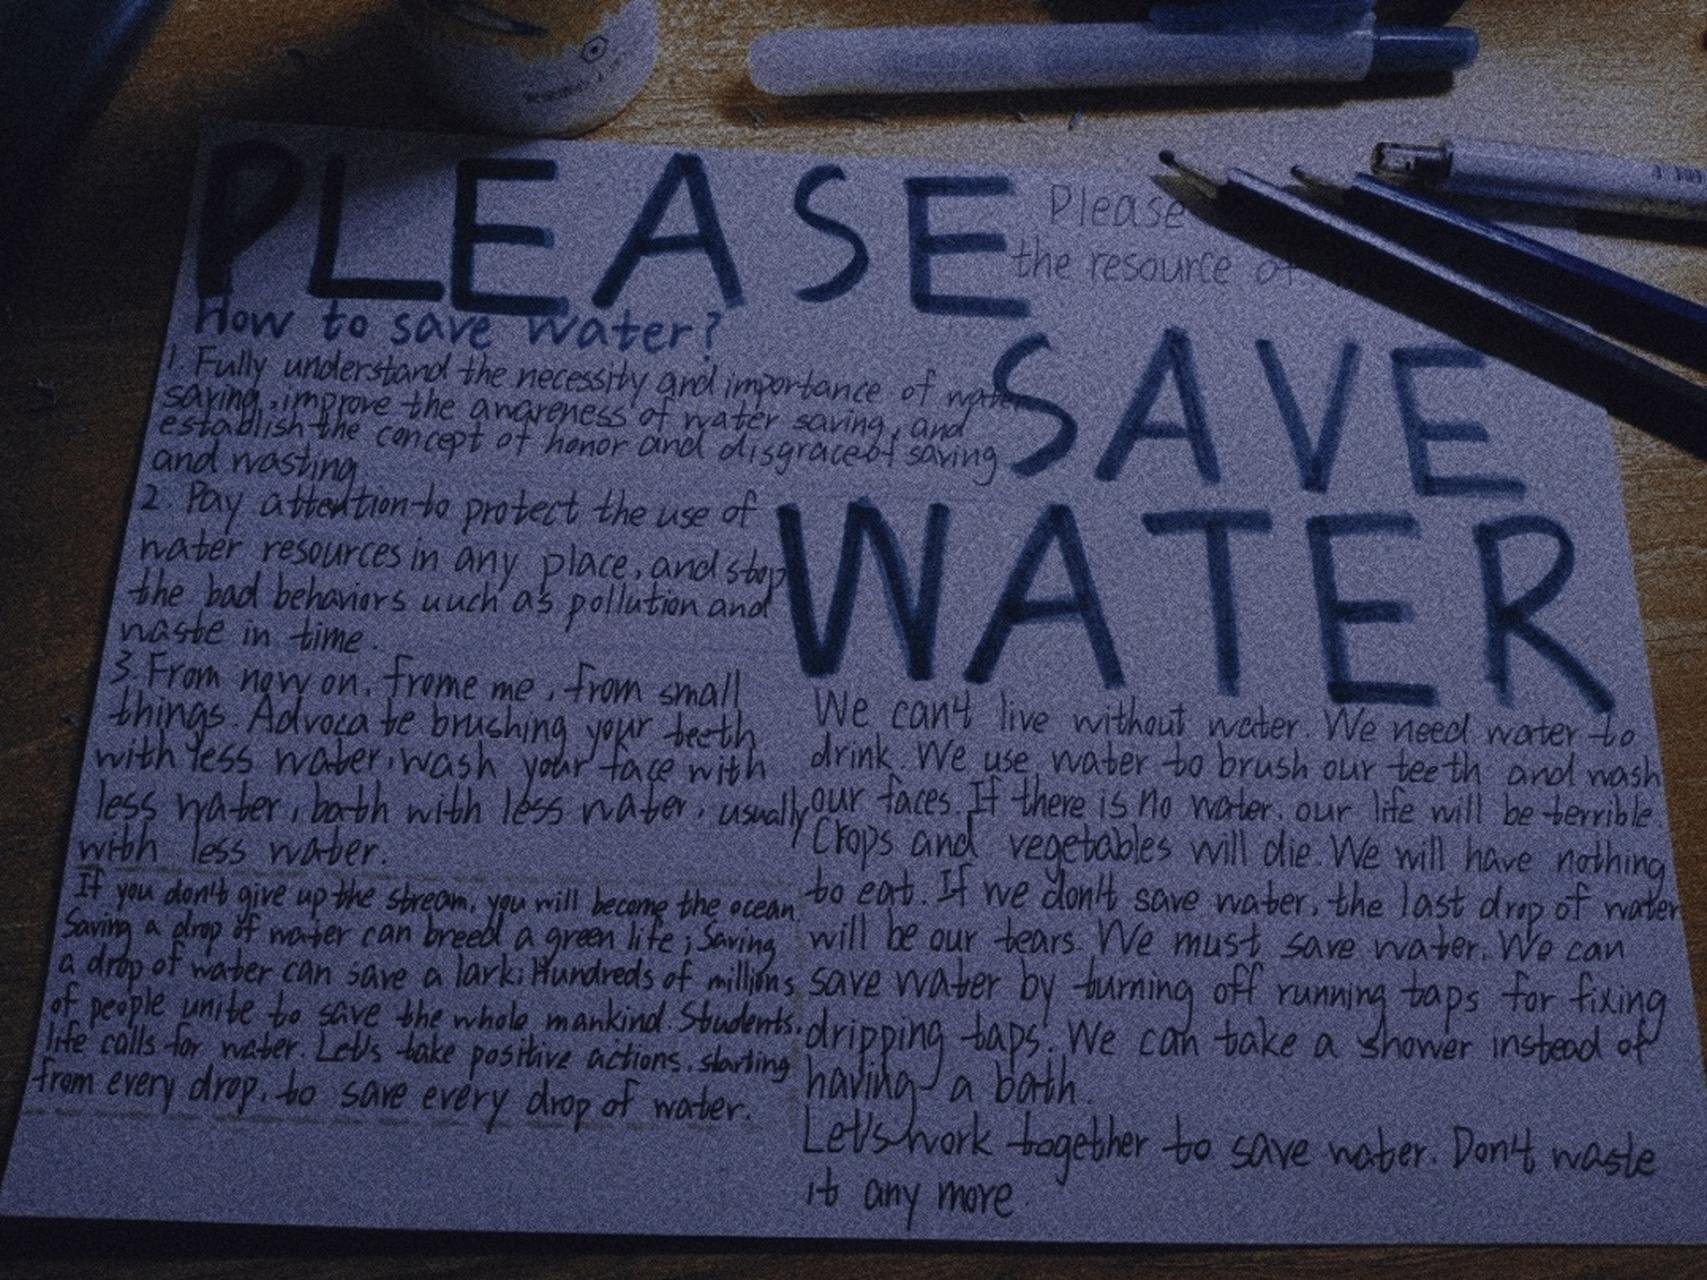 PLEASE
Please
the resource of
SAVE
WATER
How to save water?
1. Fully understand the necessity and importance of water
saving, improve the awareness of water saving, and
establish the concept of honor and disgrace of saving
and wasting
2. Pay attention to protect the use of
water resources in any place, and stop
the bad behaviors uuch as pollution and
waste in time.
3. From now on, frome me, from small
things. Advocate brushing your teeth
with less water, wash your face with
less water, bath with less water, usually
with less water.
If you don't give up the stream, you will become the ocean.
Saving a drop of water can breed a green life; Saving
a drop of water can save a lark; Hundreds of millions
of people unite to save the whole mankind. Students,
life calls for water. Let's take positive actions, starting
from every drop, to save every drop of water.
We can't live without water. We need water to
drink. We use water to brush our teeth and wash
our faces. If there is no water, our life will be terrible.
Crops and vegetables will die. We will have nothing
to eat. If we don't save water, the last drop of water
will be our tears. We must save water. We can
save water by turning off running taps for fixing
dripping taps. We can take a shower instead of
having a bath.
Let's work together to save water. Don't waste
it any more.